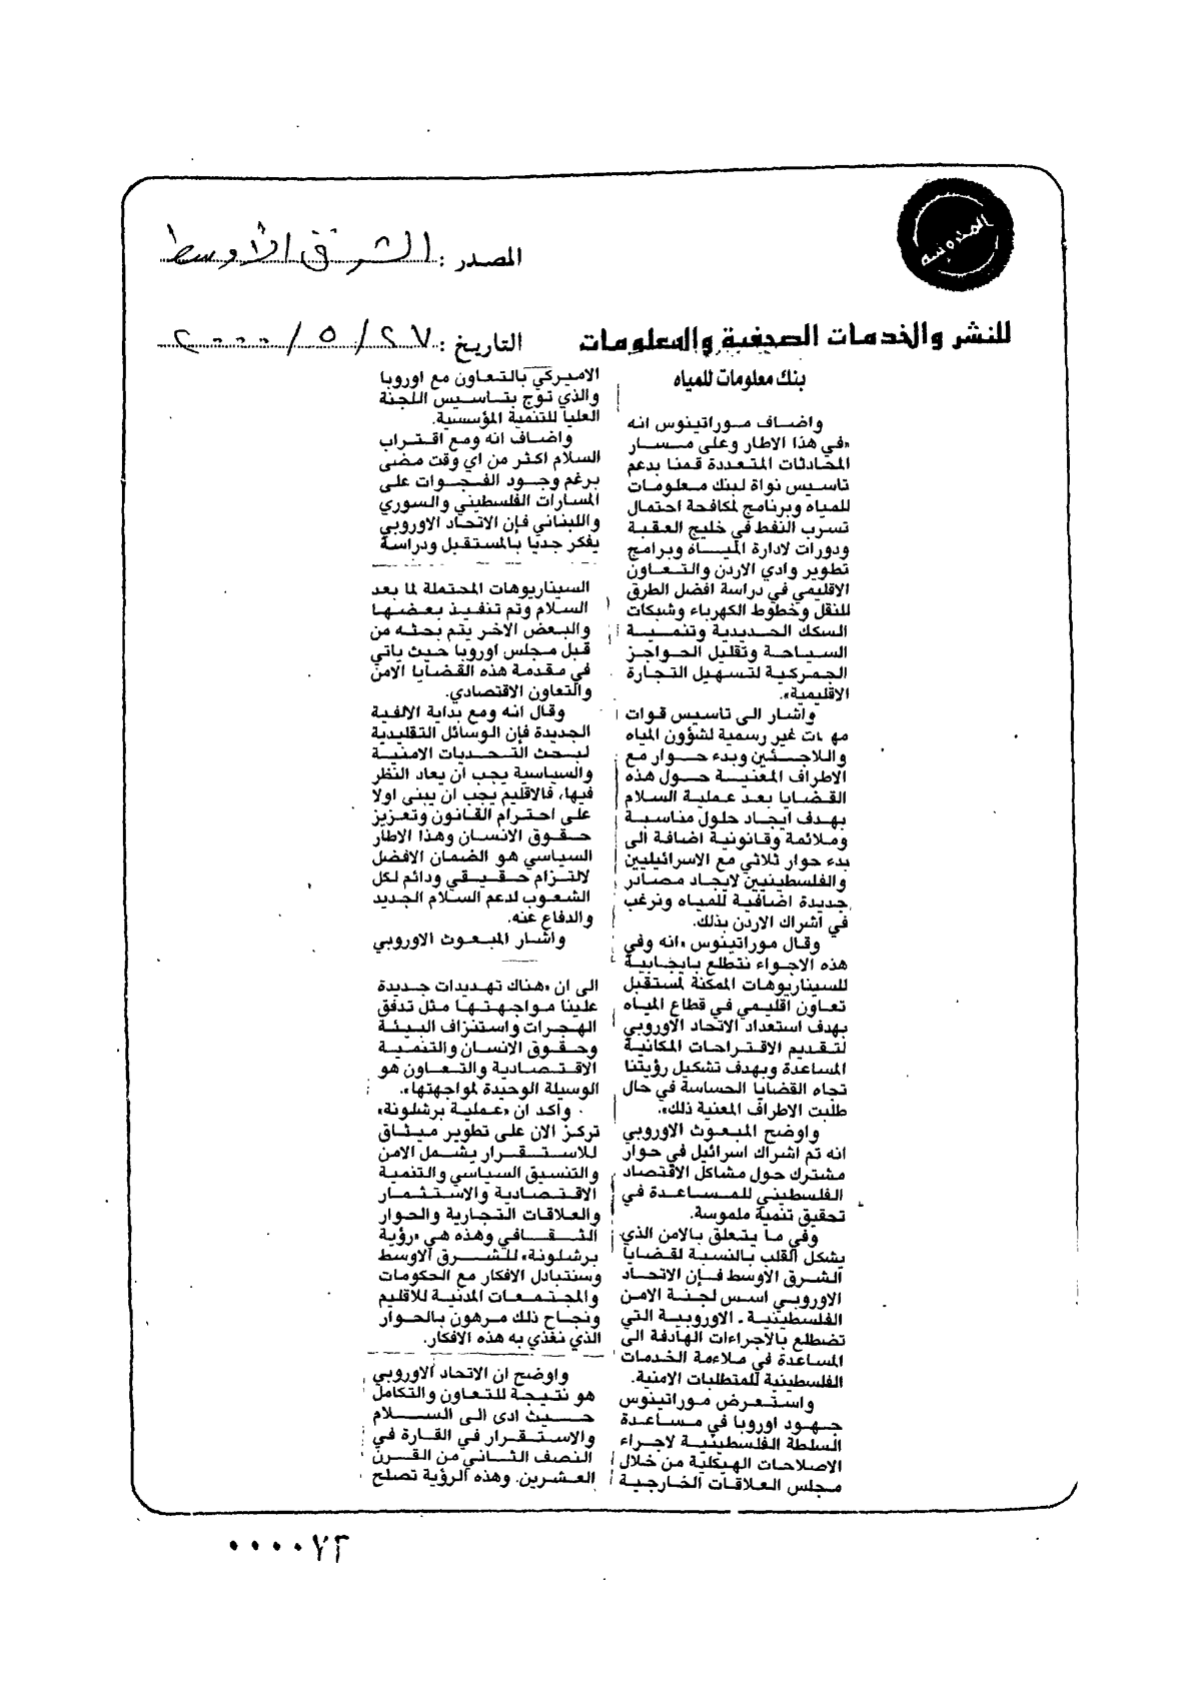 المدونيه
المصدر : الشرق الأوسط
للنشر والخدمات الصحفية والمعلومات
التاريخ : ٢٧ / ٥ / ٢٠٠٠
بنك معلومات للمياه
واضاف موراتينوس انه
«في هذا الاطار وعلى مسار
المحادثات المتعددة قمنا بدعم
تاسيس نواة لبنك معلومات
للمياه وبرنامج لمكافحة احتمال
تسرب النفط في خليج العقبة
ودورات لادارة المياه وبرامج
تطوير وادي الاردن والتعاون
الاقليمي في دراسة افضل الطرق
للنقل وخطوط الكهرباء وشبكات
السكك الحديدية وتنمية
السياحة وتقليل الحواجز
الجمركية لتسهيل التجارة
الاقليمية».
واشار الى تاسيس قوات
غير رسمية لشؤون المياه
واللاجئين وبدء حوار مع
الاطراف المعنية حول هذه
القضايا بعد عملية السلام
بهدف ايجاد حلول مناسبة
وملائمة وقانونية اضافة الى
بدء حوار ثلاثي مع الاسرائيليين
والفلسطينيين لايجاد مصادر
جديدة اضافية للمياه ونرغب
في اشراك الاردن بذلك.
وقال موراتينوس «انه وفي
هذه الاجواء نتطلع بايجابية
للسيناريوهات الممكنة لمستقبل
تعاون اقليمي في قطاع المياه
بهدف استعداد الاتحاد الاوروبي
لتقديم الاقتراحات المكانية
المساعدة وبهدف تشكيل رؤيتنا
تجاه القضايا الحساسة في حال
طلبت الاطراف المعنية ذلك».
واوضح المبعوث الاوروبي
انه تم اشراك اسرائيل في حوار
مشترك حول مشاكل الاقتصاد
الفلسطيني للمساعدة في
تحقيق تنمية ملموسة.
وفي ما يتعلق بالامن الذي
يشكل القلب بالنسبة لقضايا
الشرق الاوسط فإن الاتحاد
الاوروبي اسس لجنة الامن
الفلسطينية ـ الاوروبية التي
تضطلع بالاجراءات الهادفة الى
المساعدة في ملاءمة الخدمات
الفلسطينية للمتطلبات الامنية.
واستعرض موراتينوس
جهود اوروبا في مساعدة
السلطة الفلسطينية لاجراء
الاصلاحات الهيكلية من خلال
مجلس العلاقات الخارجية
الاميركي بالتعاون مع اوروبا
والذي توج بتاسيس اللجنة
العليا للتنمية المؤسسية.
واضاف انه ومع اقتراب
السلام اكثر من اي وقت مضى
برغم وجود الفجوات على
المسارات الفلسطيني والسوري
واللبناني فإن الاتحاد الاوروبي
يفكر جديا بالمستقبل ودراسة
السيناريوهات المحتملة لما بعد
السلام وتم تنفيذ بعضها
والبعض الاخر يتم بحثه من
قبل مجلس اوروبا حيث ياتي
في مقدمة هذه القضايا الامن
والتعاون الاقتصادي.
وقال انه ومع بداية الالفية
الجديدة فإن الوسائل التقليدية
لبحث التحديات الامنية
والسياسية يجب ان يعاد النظر
فيها، فالاقليم يجب ان يبنى اولا
على احترام القانون وتعزيز
حقوق الانسان وهذا الاطار
السياسي هو الضمان الافضل
لالتزام حقيقي ودائم لكل
الشعوب لدعم السلام الجديد
والدفاع عنه.
واشار المبعوث الاوروبي
الى ان «هناك تهديدات جديدة
علينا مواجهتها مثل تدفق
الهجرات واستنزاف البيئة
وحقوق الانسان والتنمية
الاقتصادية والتعاون هو
الوسيلة الوحيدة لمواجهتها».
واكد ان «عملية برشلونة»
تركز الان على تطوير ميثاق
للاستقرار يشمل الامن
والتنسيق السياسي والتنمية
الاقتصادية والاستثمار
والعلاقات التجارية والحوار
الثقافي وهذه هي «رؤية
برشلونة» للشرق الاوسط
وسنتبادل الافكار مع الحكومات
والمجتمعات المدنية للاقليم
ونجاح ذلك مرهون بالحوار
الذي نغذي به هذه الافكار.
واوضح ان الاتحاد الاوروبي
هو نتيجة للتعاون والتكامل
حيث ادى الى السلام
والاستقرار في القارة في
النصف الثاني من القرن
العشرين. وهذه الرؤية تصلح
٠٠٠٠٧٢